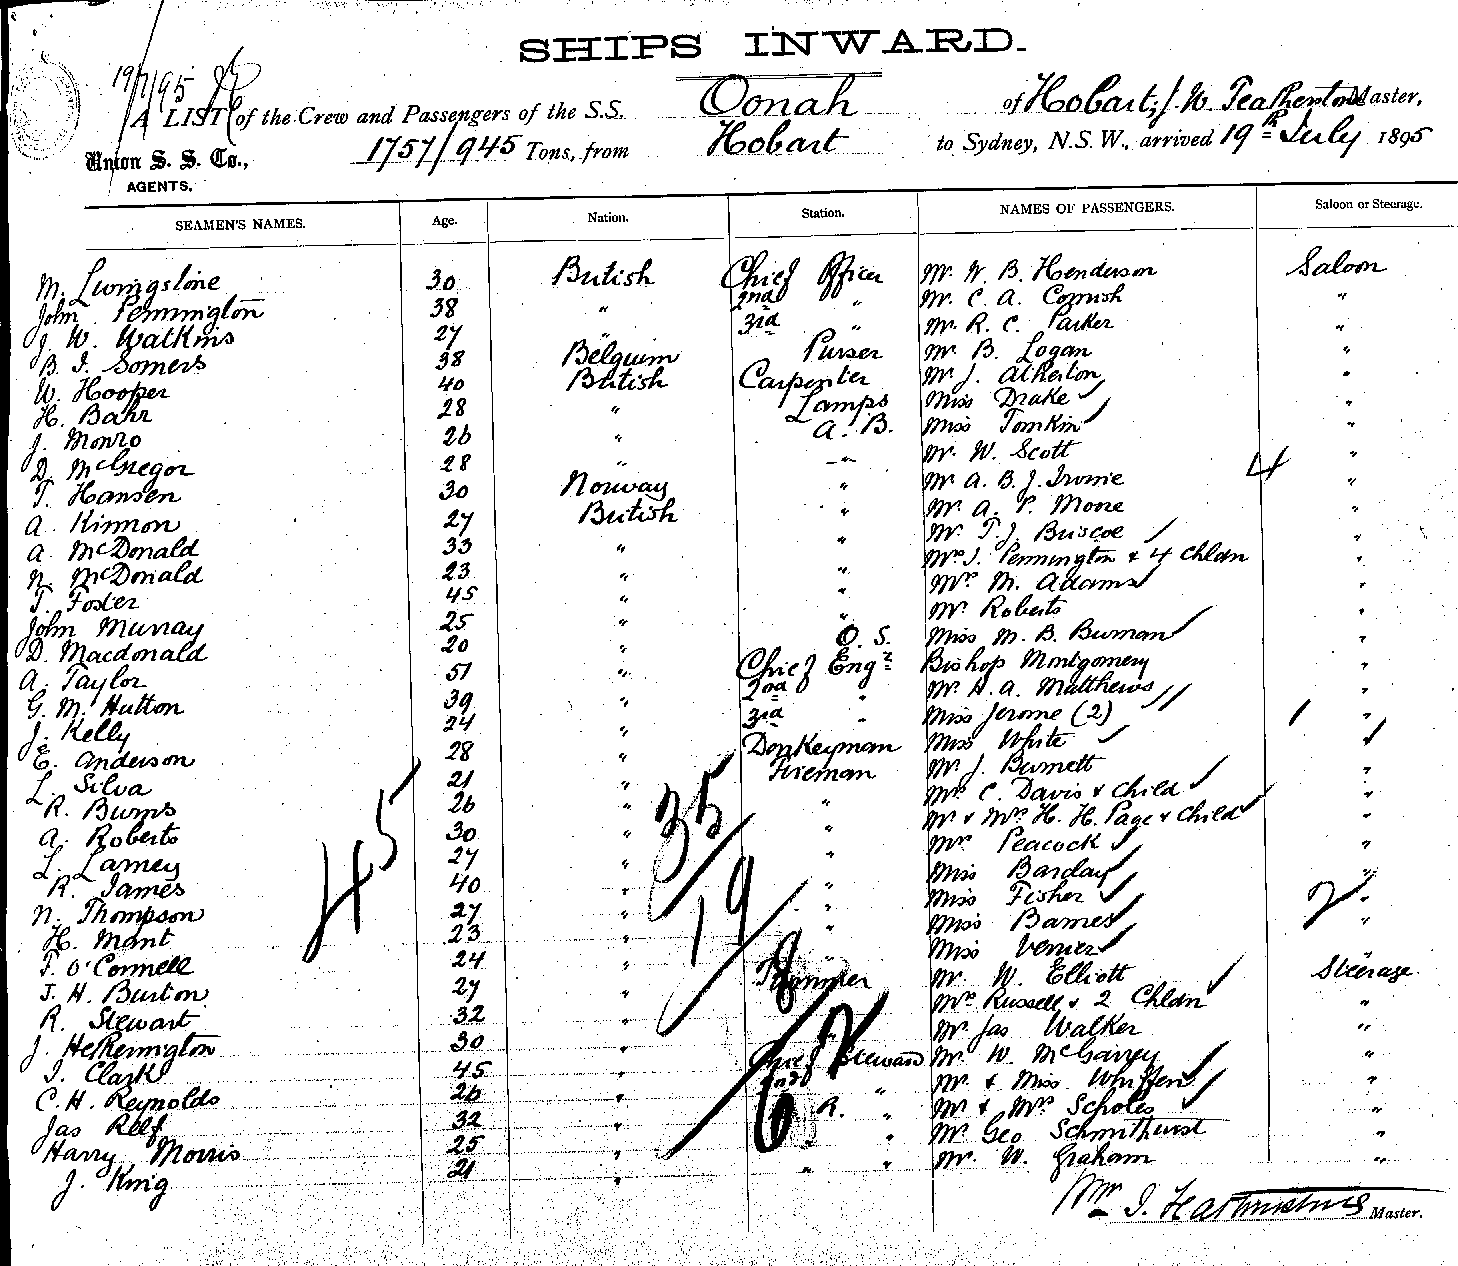 SHIPS INWARD.
19/7/95
A LIST of the Crew and Passengers of the S.S. Oonah of Hobart, J. W. Featherstone Master,
Union S. S. Co., 1757/945 Tons, from Hobart to Sydney, N.S.W., arrived 19th July 1895
AGENTS.
SEAMEN'S NAMES. Age. Nation. Station. NAMES OF PASSENGERS. Saloon or Steerage.
M. Livingstone 30 British Chief Officer Mr. W. B. Henderson Saloon
John Pennington 38 " 2nd " Mr. C. A. Cornish "
J. W. Watkins 27 " 3rd " Mr. R. C. Parker "
B. I. Somers 38 Belguim Purser Mr. B. Logan "
W. Hooper 40 British Carpenter Mr J. Atherton "
H. Bahr 28 " Lamps Miss Drake "
J. Monro 26 " A. B. Miss Tomkin "
D. McGregor 28 " " Mr. W. Scott "
T. Hansen 30 Norway " Mr A. B. J. Irvine 4 "
A. Kinnon 27 British " Mr. A. P. Moore "
A. McDonald 33 " " Mr. T. J. Briscoe "
N. McDonald 23 " " Mrs J. Pennington & 4 Chldn "
T. Foster 45 " " Mrs M. Adams "
John Murray 25 " " Mr Roberts "
D. Macdonald 20 " O. S. Miss M. B. Burman "
A. Taylor 51 " Chief Engr Bishop Montgomery "
G. M. Hutton 39 " 2nd " Mr. H. A. Matthews "
J. Kelly 24 " 3rd " Miss Jerome (2) 1 "
E. Anderson 28 " Donkeyman Miss White "
L. Silva 21 " Fireman Mr. J. Burnett "
R. Burns 26 " " Mrs C. Davis & Child "
A. Roberts 30 " " Mr & Mrs H. H. Page & Child "
L. Lamey 27 " " Mrs Peacock "
R. James 40 " " Miss Barclay "
N. Thompson 27 " " Miss Fisher 2 "
H. Mant 23 " " Miss Barnes "
T. O'Connell 24 " " Miss Venier "
J. H. Burton 27 " Trimmer Mr. W. Elliott Steerage
R. Stewart 32 " Mrs Russell & 2 Chldn "
J. Hetherington 30 " Mr Jas Walker "
I. Clark 45 " Chief Steward Mr. W. McGarrey "
C. H. Reynolds 26 " 2nd " Mr. & Miss Whiffen "
Jas Relf 32 " R. " Mr & Mrs Scholes "
Harry Morris 25 " " Mr Geo Schmithurst "
J. King 21 " " " Mr. W. Graham "
45
35
19
8
7
6
Master.